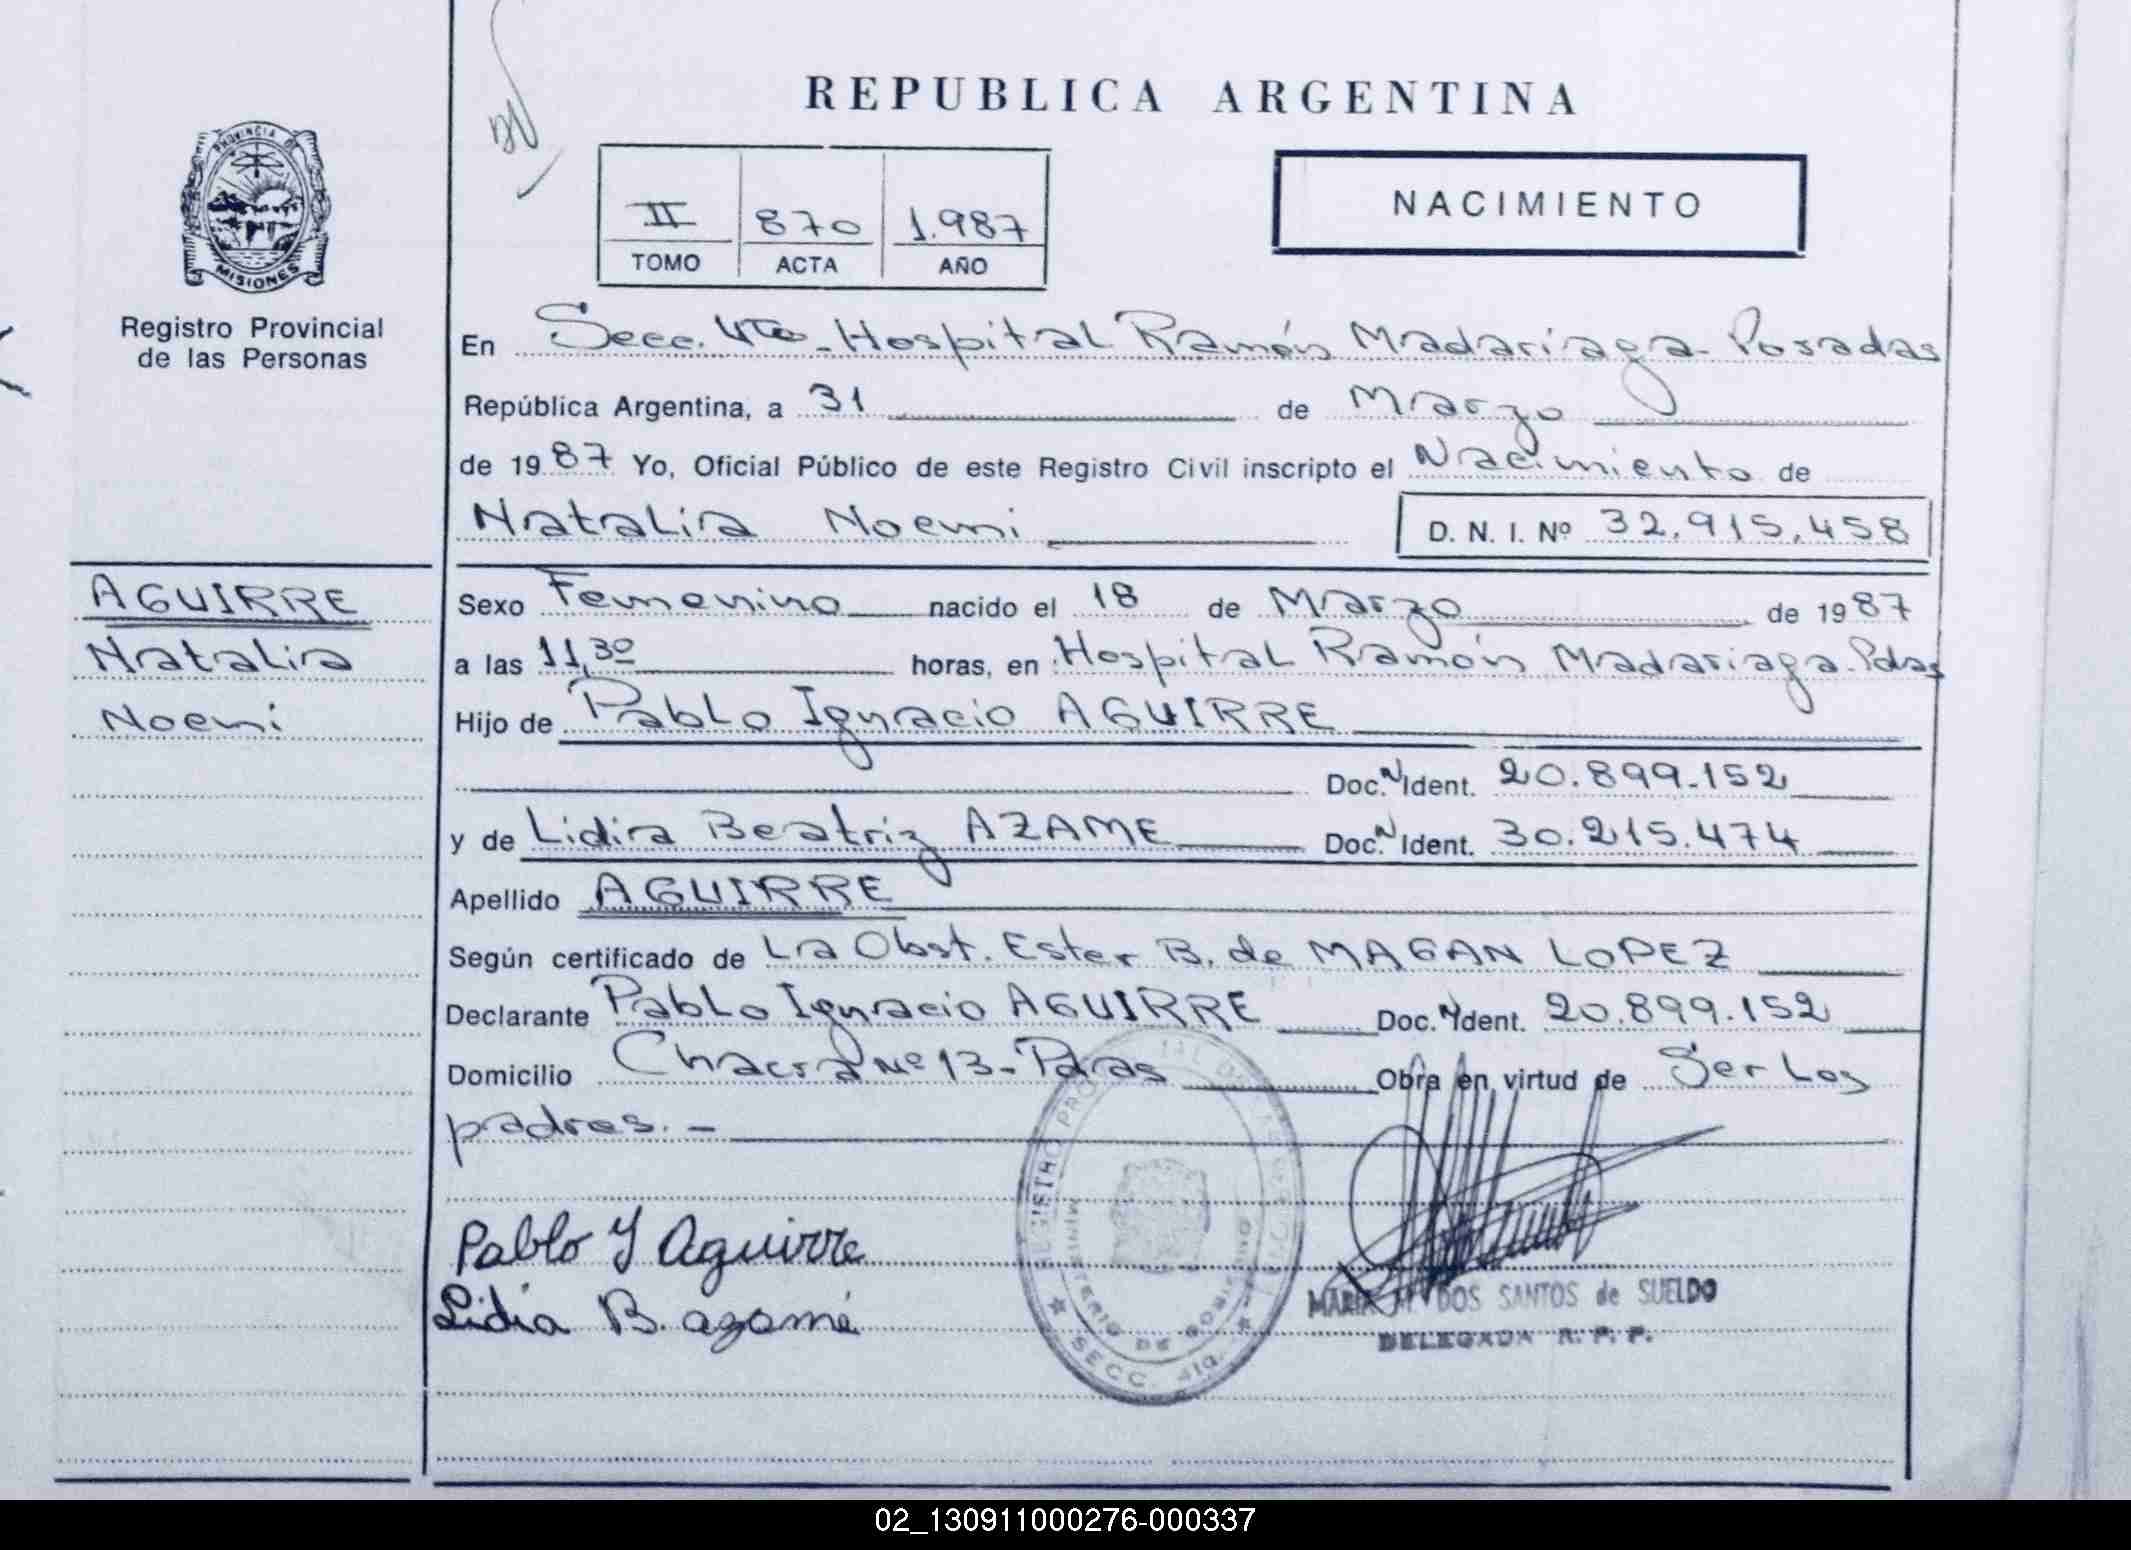 REPUBLICA ARGENTINA
PROVINCIA DE
MISIONES
Registro Provincial
de las Personas
II 870 1.987
TOMO ACTA AÑO
NACIMIENTO
En Secc. 4ta - Hospital Ramón Madariaga - Posadas
República Argentina, a 31 de Marzo
de 1987 Yo, Oficial Público de este Registro Civil inscripto el Nacimiento de
Natalia Noemi D. N. I. Nº 32.915.458
AGUIRRE
Natalia
Noemi
Sexo Femenino nacido el 18 de Marzo de 1987
a las 11,30 horas, en Hospital Ramón Madariaga. Pdas
Hijo de Pablo Ignacio AGUIRRE
Doc. N Ident. 20.899.152
y de Lidia Beatriz AZAME Doc. N Ident. 30.215.474
Apellido AGUIRRE
Según certificado de La Obst. Ester B. de MAGAN LOPEZ
Declarante Pablo Ignacio AGUIRRE Doc. N Ident. 20.899.152
Domicilio Chacra Nº 13 - Pdas Obra en virtud de Ser Los
padres. -
Pablo Y Aguirre
Lidia B. azamé
REGISTRO PROVINCIAL DE LAS PERSONAS
MINISTERIO DE GOBIERNO
SECC. 4ta.
MARIA M. DOS SANTOS de SUELDO
DELEGADA R. P. P.
02_130911000276-000337